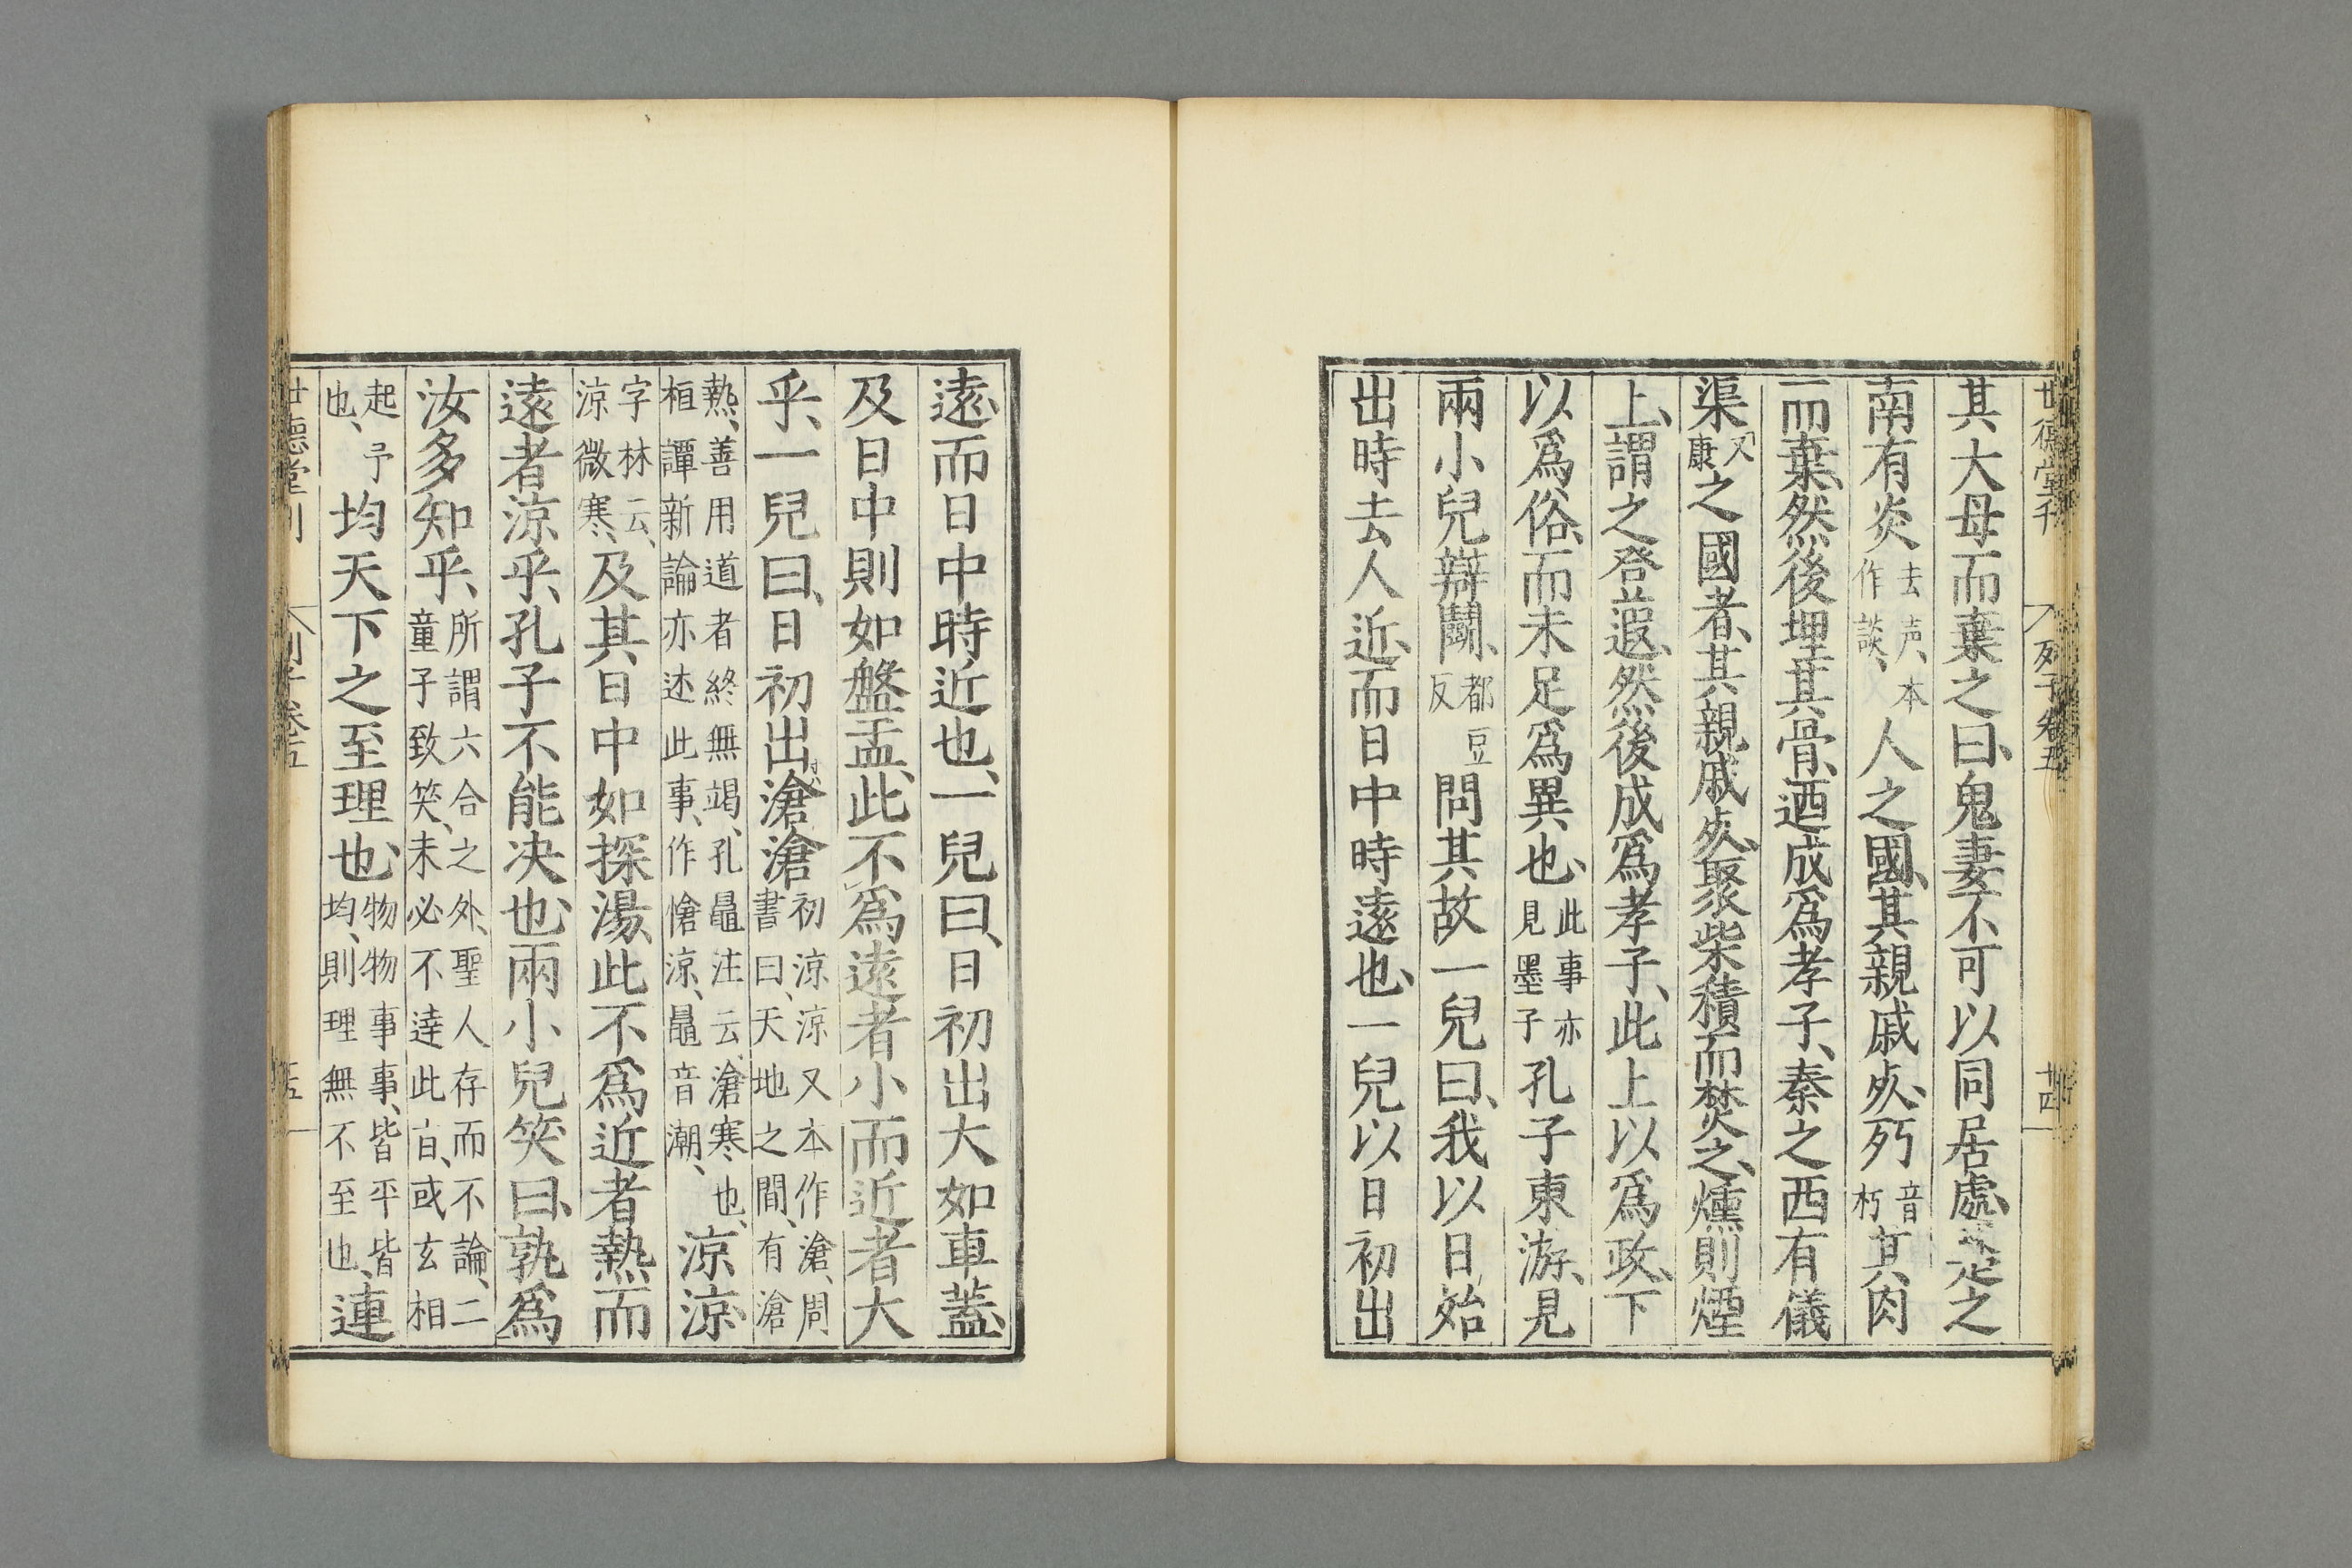 世德堂刊 列子卷五 廿四
其大母而棄之曰、鬼妻不可以同居處、楚之
南有炎、去声、本作談、又人之國、其親戚死、㱙音朽其肉
而棄、然後埋其骨、迺成爲孝子、秦之西有儀
渠又康之國者、其親戚死、聚柴積而焚之、燻則煙
上、謂之登遐、然後成爲孝子、此上以爲政、下
以爲俗、而未足爲異也、此事亦見墨子孔子東游、見
兩小兒辯鬭、都豆反問其故一兒曰、我以日始
出時去人近、而日中時遠也、一兒以日初出
遠、而日中時近也、一兒曰、日初出大如車蓋、
及日中則如盤盂、此不爲遠者小而近者大
乎、一兒曰、日初出滄滄初涼涼又本作滄、周書曰、天地之間、有滄
熱、善用道者終無竭、孔鼂注云、滄寒也、桓譚新論亦述此事、作愴涼、鼂音潮、涼涼、
字林云、涼微寒、及其日中如探湯、此不爲近者熱而
遠者涼乎、孔子不能决也、兩小兒笑曰、孰爲
汝多知乎、所謂六合之外、聖人存而不論、二童子致笑、未必不達此旨、或玄相
起予也、均天下之至理也、物物事事、皆平皆均、則理無不至也、連
世德堂刊 列子卷五